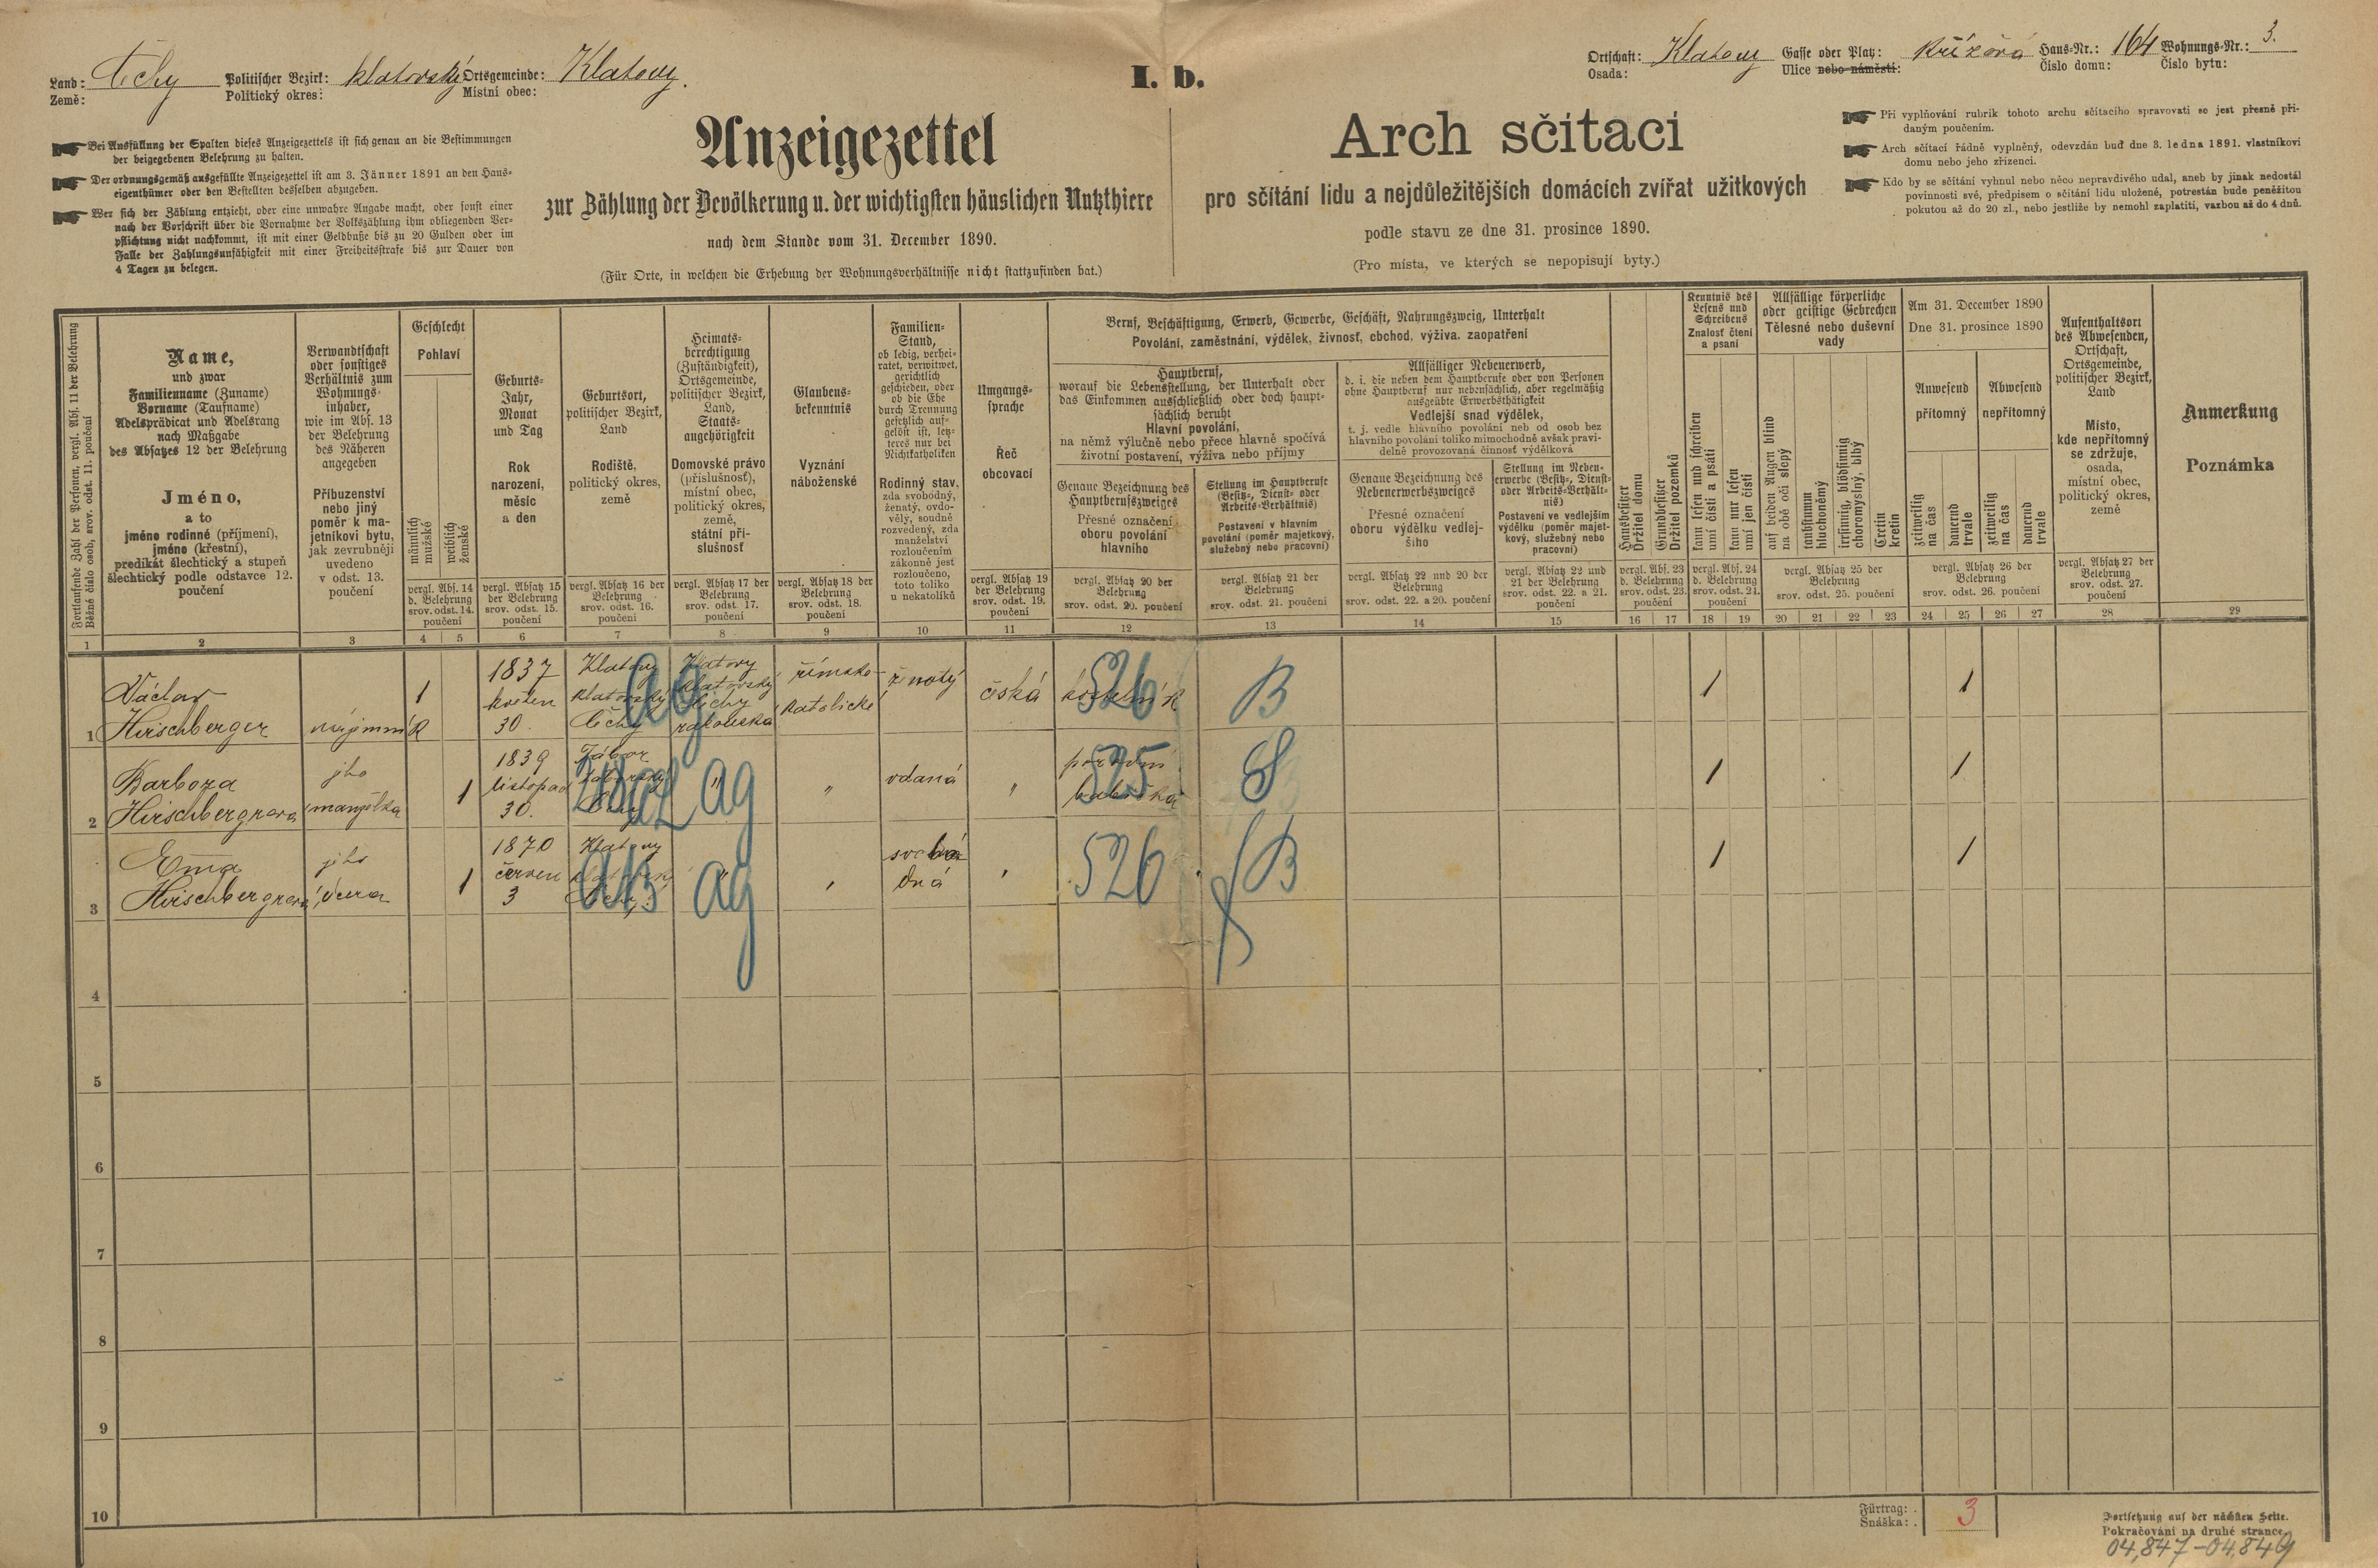 I. b.
Land: Země: Čechy
Politischer Bezirk: Politický okres: klatovský
Ortsgemeinde: Místní obec: Klatovy.
Ortschaft: Osada: Klatovy
Gasse oder Platz: Ulice nebo náměstí: křížová
Haus-Nr.: Číslo domu: 164
Wohnungs-Nr.: Číslo bytu: 3.
Bei Ausfüllung der Spalten dieses Anzeigezettels ist sich genau an die Bestimmungen
der beigegebenen Belehrung zu halten.
Der ordnungsgemäß ausgefüllte Anzeigezettel ist am 3. Jänner 1891 an den Haus-
eigenthümer oder den Bestellten desselben abzugeben.
Wer sich der Zählung entzieht, oder eine unwahre Angabe macht, oder sonst einer
nach der Vorschrift über die Vornahme der Volkszählung ihm obliegenden Ver-
pflichtung nicht nachkommt, ist mit einer Geldbuße bis zu 20 Gulden oder im
Falle der Zahlungsunfähigkeit mit einer Freiheitsstrafe bis zur Dauer von
4 Tagen zu belegen.
Anzeigezettel
zur Zählung der Bevölkerung u. der wichtigsten häuslichen Nutzthiere
nach dem Stande vom 31. December 1890.
(Für Orte, in welchen die Erhebung der Wohnungsverhältnisse nicht stattzufinden hat.)
Arch sčítací
pro sčítání lidu a nejdůležitějších domácích zvířat užitkových
podle stavu ze dne 31. prosince 1890.
(Pro místa, ve kterých se nepopisují byty.)
Při vyplňování rubrik tohoto archu sčítacího spravovati se jest přesně při-
daným poučením.
Arch sčítací řádně vyplněný, odevzdán buď dne 3. ledna 1891. vlastníkovi
domu nebo jeho zřízenci.
Kdo by se sčítání vyhnul nebo něco nepravdivého udal, aneb by jinak nedostál
povinnosti své, předpisem o sčítání lidu uložené, potrestán bude peněžitou
pokutou až do 20 zl., nebo jestliže by nemohl zaplatiti, vazbou až do 4 dnů.
Fortlaufende Zahl der Personen, vergl. Abs. 11 der Belehrung
Běžné číslo osob, srov. odst. 11. poučení
1
Name,
und zwar
Familienname (Zuname)
Vorname (Taufname)
Adelsprädicat und Adelsrang
nach Maßgabe
des Absatzes 12 der Belehrung
Jméno,
a to
jméno rodinné (příjmení),
jméno (křestní),
predikát šlechtický a stupeň
šlechtický podle odstavce 12.
poučení
2
Verwandtschaft
oder sonstiges
Verhältnis zum
Wohnungs-
inhaber,
wie im Abs. 13
der Belehrung
des Näheren
angegeben
Příbuzenství
nebo jiný
poměr k ma-
jetníkovi bytu,
jak zevrubněji
uvedeno
v odst. 13.
poučení
3
Geschlecht
Pohlaví
männlich
mužské
weiblich
ženské
vergl. Abs. 14
d. Belehrung
srov. odst. 14.
poučení
4 5
Geburts-
Jahr,
Monat
und Tag
Rok
narození,
měsíc
a den
vergl. Absatz 15
der Belehrung
srov. odst. 15.
poučení
6
Geburtsort,
politischer Bezirk,
Land
Rodiště,
politický okres,
země
vergl. Absatz 16 der
Belehrung
srov. odst. 16.
poučení
7
Heimats-
berechtigung
(Zuständigkeit),
Ortsgemeinde,
politischer Bezirk,
Land,
Staats-
angehörigkeit
Domovské právo
(příslušnosť),
místní obec,
politický okres,
země,
státní pří-
slušnosť
vergl. Absatz 17 der
Belehrung
srov. odst. 17.
poučení
8
Glaubens-
bekenntnis
Vyznání
náboženské
vergl. Absatz 18 der
Belehrung
srov. odst. 18.
poučení
9
Familien-
Stand,
ob ledig, verhei-
ratet, verwitwet,
gerichtlich
geschieden, oder
ob die Ehe
durch Trennung
gesetzlich auf-
gelöst ist, letz-
teres nur bei
Nichtkatholiken
Rodinný stav,
zda svobodný,
ženatý, ovdo-
vělý, soudně
rozvedený, zda
manželství
rozloučením
zákonně jest
rozloučeno,
toto toliko
u nekatolíků
10
Umgangs-
sprache
Řeč
obcovací
vergl. Absatz 19
der Belehrung
srov. odst. 19.
poučení
11
Beruf, Beschäftigung, Erwerb, Gewerbe, Geschäft, Nahrungszweig, Unterhalt
Povolání, zaměstnání, výdělek, živnosť, obchod, výživa, zaopatření
Hauptberuf,
worauf die Lebensstellung, der Unterhalt oder
das Einkommen ausschließlich oder doch haupt-
sächlich beruht
Hlavní povolání,
na němž výlučně nebo přece hlavně spočívá
životní postavení, výživa nebo příjmy
Genaue Bezeichnung des
Hauptberufszweiges
Přesné označení
oboru povolání
hlavního
vergl. Absatz 20 der
Belehrung
srov. odst. 20. poučení
12
Stellung im Hauptberufe
(Besitz-, Dienst- oder
Arbeits-Verhältnis)
Postavení v hlavním
povolání (poměr majetkový,
služebný nebo pracovní)
vergl. Absatz 21 der
Belehrung
srov. odst. 21. poučení
13
Allfälliger Nebenerwerb,
d. i. die neben dem Hauptberufe oder von Personen
ohne Hauptberuf nur nebensächlich, aber regelmäßig
ausgeübte Erwerbsthätigkeit
Vedlejší snad výdělek,
t. j. vedle hlavního povolání neb od osob bez
hlavního povolání toliko mimochodně avšak pravi-
delně provozovaná činnosť výdělková
Genaue Bezeichnung des
Nebenerwerbszweiges
Přesné označení
oboru výdělku vedlej-
šího
vergl. Absatz 22 und 20 der
Belehrung
srov. odst. 22. a 20. poučení
14
Stellung im Neben-
erwerbe (Besitz-, Dienst-
oder Arbeits-Verhält-
nis)
Postavení ve vedlejším
výdělku (poměr majet-
kový, služebný nebo
pracovní)
vergl. Absatz 22 und
21 der Belehrung
srov. odst. 22. a 21.
poučení
15
Hausbesitzer
Držitel domu
Grundbesitzer
Držitel pozemků
vergl. Abs. 23
d. Belehrung
srov. odst. 23.
poučení
16 17
Kenntnis des
Lesens und
Schreibens
Znalosť čtení
a psaní
kann lesen und schreiben
umí čísti a psáti
kann nur lesen
umí jen čísti
vergl. Abs. 24
d. Belehrung
srov. odst. 24.
poučení
18 19
Allfällige körperliche
oder geistige Gebrechen
Tělesné nebo duševní
vady
auf beiden Augen blind
na obě oči slepý
taubstumm
hluchoněmý
irrsinnig, blödsinnig
choromyslný, blbý
Cretin
kretin
vergl. Absatz 25 der
Belehrung
srov. odst. 25. poučení
20 21 22 23
Am 31. December 1890
Dne 31. prosince 1890
Anwesend
přítomný
Abwesend
nepřítomný
zeitweilig
na čas
dauernd
trvale
zeitweilig
na čas
dauernd
trvale
vergl. Absatz 26 der
Belehrung
srov. odst. 26. poučení
24 25 26 27
Aufenthaltsort
des Abwesenden,
Ortschaft,
Ortsgemeinde,
politischer Bezirk,
Land
Místo,
kde nepřítomný
se zdržuje,
osada,
místní obec,
politický okres,
země
vergl. Absatz 27 der
Belehrung
srov. odst. 27.
poučení
28
Anmerkung
Poznámka
29
1 Václav
Hirschberger
nájimník
1
1837
květen
30
Klatovy
klatovský
Čechy
ag
Klatovy
klatovský
Čechy
rakouská
římsko-
katolické
ženatý
česká
kostelník
526
B
1
1
2 Barbora
Hirschbergrova
jho
manželka
1
1839
listopad
30.
Tábor
táborský
Čechy
" ag
"
vdaná
"
porodní
babička
525
S
1
1
3 Ema
Hirschbergrova
jeho
dcera
1
1870
červen
3
Klatovy
klatovský
Čechy
" ag
"
svobo
dná
"
526
B
1
1
4
5
6
7
8
9
10
Fürtrag:
Snáška:
3
Fortsetzung auf der nächsten Seite.
Pokračování na druhé strance.
04,847-04,849